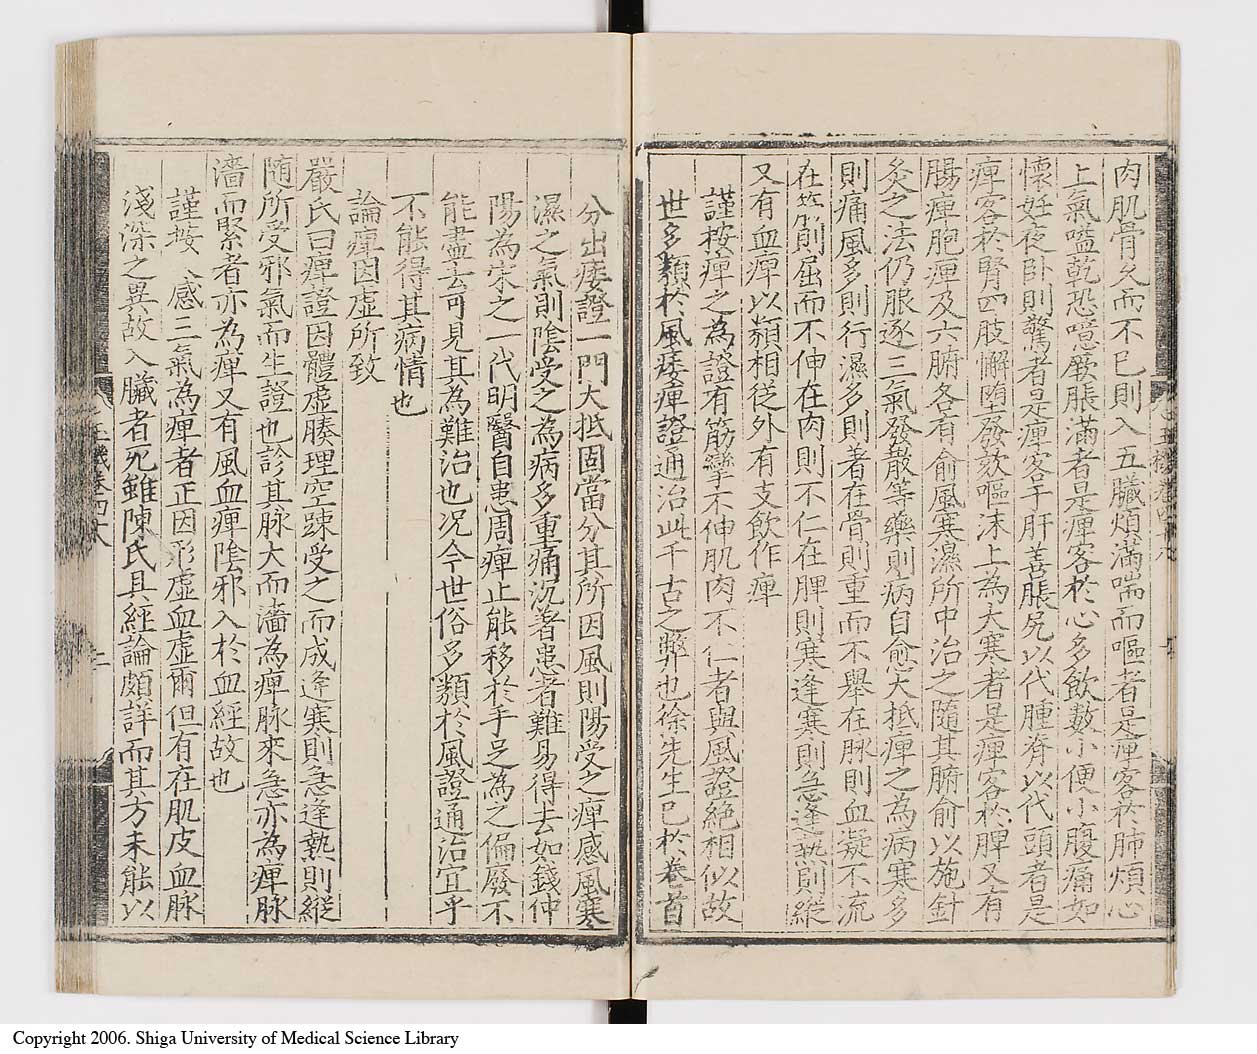 肉肌骨久而不已則入五臟煩滿喘而嘔者是痺客於肺煩心
上氣嗌乾恐噫厥脹滿者是痺客於心多飲數小便小腹痛如
懷妊夜卧則驚者是痺客于肝善脹尻以代腫脊以代頭者是
痺客於腎四肢懈堕發欬嘔沫上為大寒者是痺客於脾又有
腸痺胞痺及六腑各有俞風寒濕所中治之隨其腑俞以施針
灸之法仍服逐三氣發散等藥則病自愈大抵痺之為病寒多
則痛風多則行濕多則著在骨則重而不舉在脉則血凝不流
在筋則屈而不伸在肉則不仁在脾則寒逢寒則急逢熱則縱
又有血痺以類相從外有支飲作痺
謹按痺之為證有筋攣不伸肌肉不仁者與風證絕相似故
世多類於風痿痺證通治此千古之弊也徐先生已於卷首
分出痿證一門大抵固當分其所因風則陽受之痺感風寒
濕之氣則陰受之為病多重痛沉著患者難易得去如錢仲
陽為宋之一代明醫自患周痺止能移於手足為之偏廢不
能盡去可見其為難治也况今世俗多類於風證通治宜乎
不能得其病情也
論痺因虛所致
嚴氏曰痺證因體虛腠理空踈受之而成逢寒則急逢熱則縱
随所受邪氣而生證也診其脉大而濇為痺脉來急亦為痺脉
濇而緊者亦為痺又有風血痺陰邪入於血經故也
謹按感三氣為痺者正因形虛血虛爾但有在肌皮血脉
淺深之異故入臟者死雖陳氏具經論頗詳而其方未能以